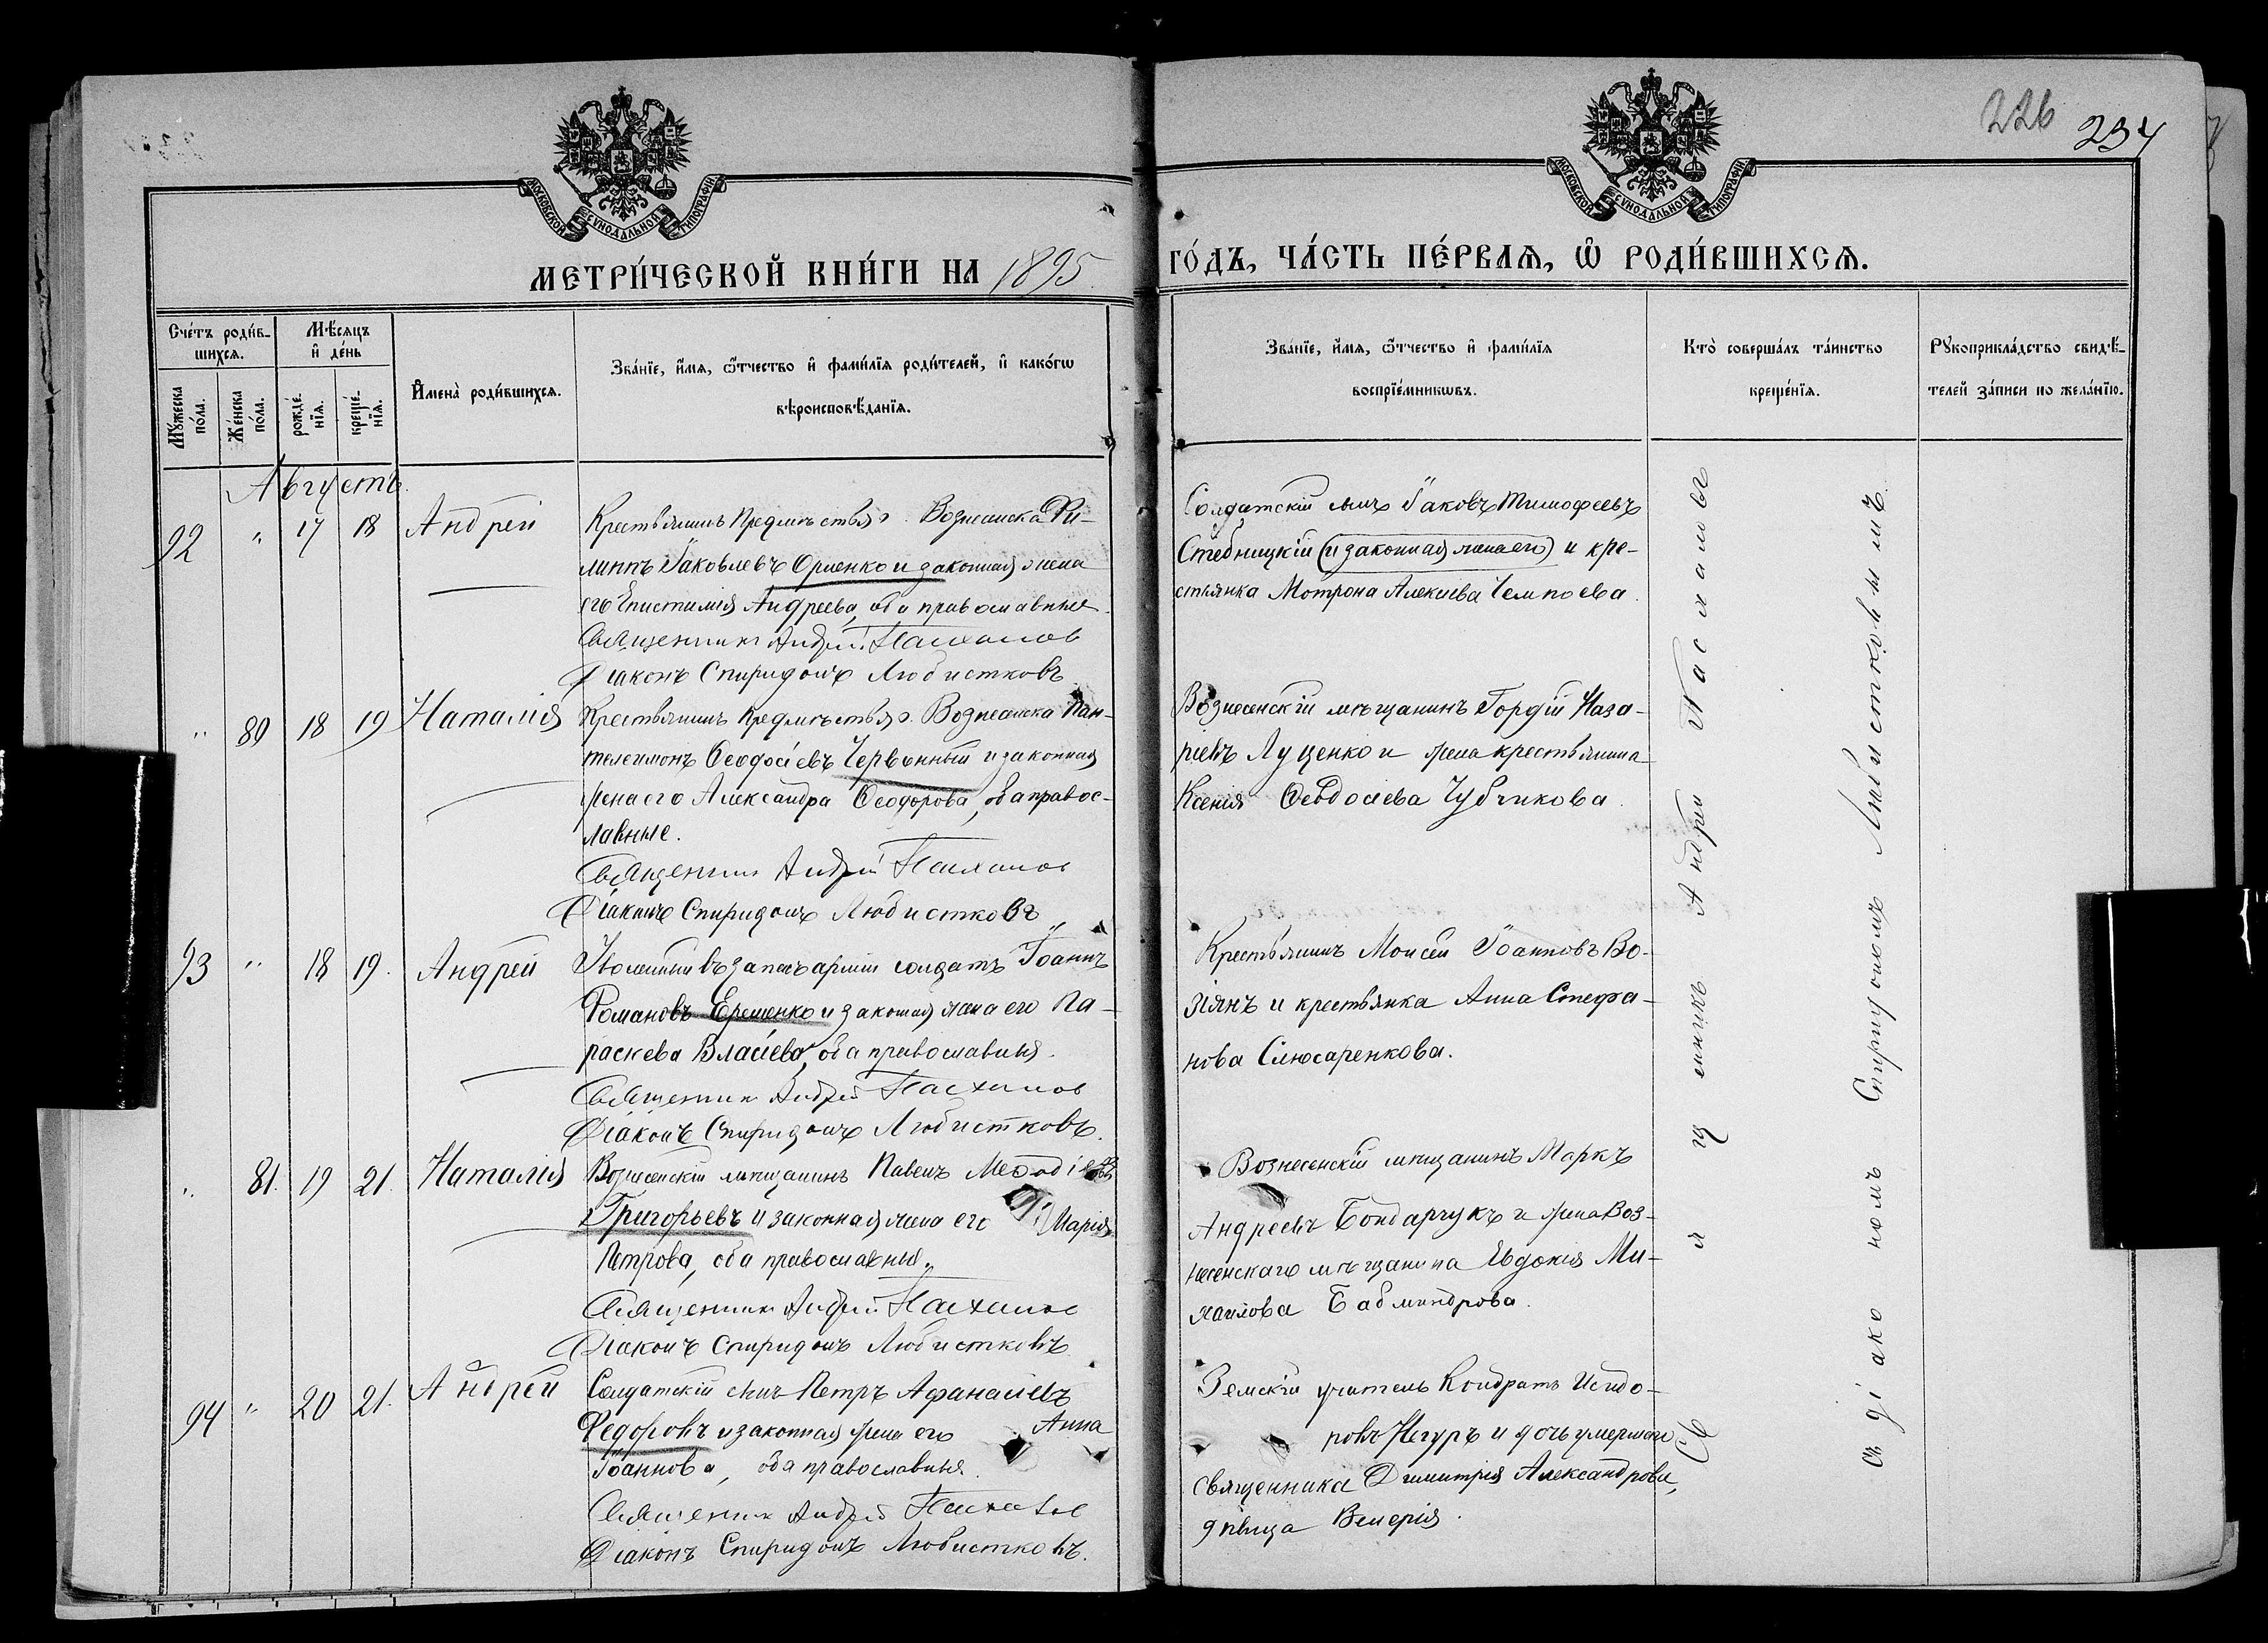 226
234
МОСКОВСКОЙ СѴНОДАЛЬНОЙ ТИПОГРАФІИ
МОСКОВСКОЙ СѴНОДАЛЬНОЙ ТИПОГРАФІИ
МЕТРИ́ЧЕСКОЙ КНИ́ГИ НА 1895 ГО́ДЪ, ЧА́СТЬ ПЕ́РВАѦ, Ѡ҆ РОДИ́ВШИХСѦ.
Сче́тъ роди́в-
шихсѧ.
Мꙋ́жеска по́ла.
Же́нска по́ла.
Мѣ́сѧцъ и҆ де́нь
рожде́-нїѧ.
креще́-нїѧ.
И҆мена̀ роди́вшихсѧ.
Зва́нїе, и҆́мѧ, ѻ҆́тчество и҆ фами́лїѧ роди́телей, и҆ како́гѡ
вѣроисповѣ́данїѧ.
Зва́нїе, и҆́мѧ, ѻ҆́тчество и҆ фами́лїѧ
воспрїе́мникѡвъ.
Кто̀ соверша́лъ та́инство
креще́нїѧ.
Рꙋкоприкла́дство свидѣ́-
телей за́писи по жела́нїю.
Августъ.
92 " 17 18 Андрей
Крестьянинъ Предмѣстья г. Вознесенска Фи-
липпъ Іаковлевъ и законная жена
его Епистимія Андреева, оба православные.
Священникъ Андрей
Діаконъ Спиридонъ Любистковъ
Солдатскій сынъ Іаковъ Тимофеевъ
Стебницкій (и законная жена его) и кре-
стьянка Мотрона Алексіева
" 80 18 19 Наталія
Крестьянинъ предмѣстья г. Вознесенска Пан-
телеимонъ Ѳеодосіевъ Червонный и законная
жена его Александра Ѳеодорова, оба правос-
лавные.
Священникъ Андрей
Діаконъ Спиридонъ Любистковъ
Вознесенскій мѣщанинъ Гордій Наза-
ріевъ Луценко и жена крестьянина
Ксенія Ѳеодосіева Чубчикова
93 " 18 19. Андрей
Уволенный въ запасъ арміи солдатъ Іоаннъ
Романовъ Ерешенко и законная жена его Па-
раскева Власіева, оба православные.
Священникъ Андрей
Діаконъ Спиридонъ Любистковъ.
Крестьянинъ Моисей Іоанновъ Во-
зіянъ и крестьянка Анна Стефа-
нова Слюсаренкова.
" 81. 19 21. Наталія
Вознесенскій мѣщанинъ Павелъ Меѳодіевъ
Григорьевъ и законная жена его Марія
Петрова, оба православные.
Священникъ Андрей
Діаконъ Спиридонъ Любистковъ
Вознесенскій мѣщанинъ Маркъ
Андреевъ Бондарчукъ и жена Воз-
несенскаго мѣщанина Евдокія Ми-
хаилова
94 " 20 21. Андрей
Солдатскій сынъ Петръ Афанасіевъ
Федоровъ и законная жена его Анна
Іоаннова, оба православные.
Священникъ Андрей
Діаконъ Спиридонъ Любистковъ.
Земскій учитель Кондратъ Исидо-
ровъ Негуръ и дочь умершаго
священника Димитрія Александрова,
дѣвица Валерія.
Священникъ Андрей
съ діакономъ Спиридономъ Любистковымъ